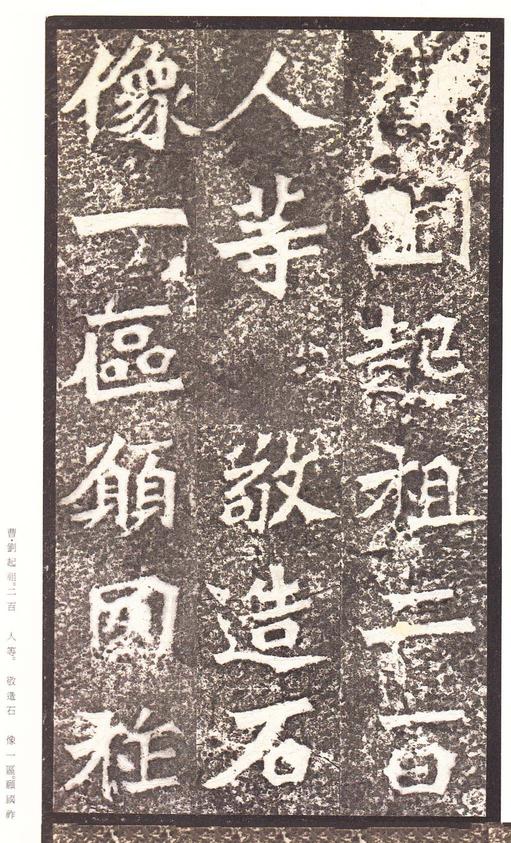 起祖二百
人等 敬造石
像一區願國祚
曹·劉起祖。二百 人等。 敬造石 像一區。願國祚